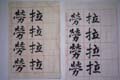 拉拉拉拉
勞勞勞勞
拉拉拉拉
勞勞勞勞